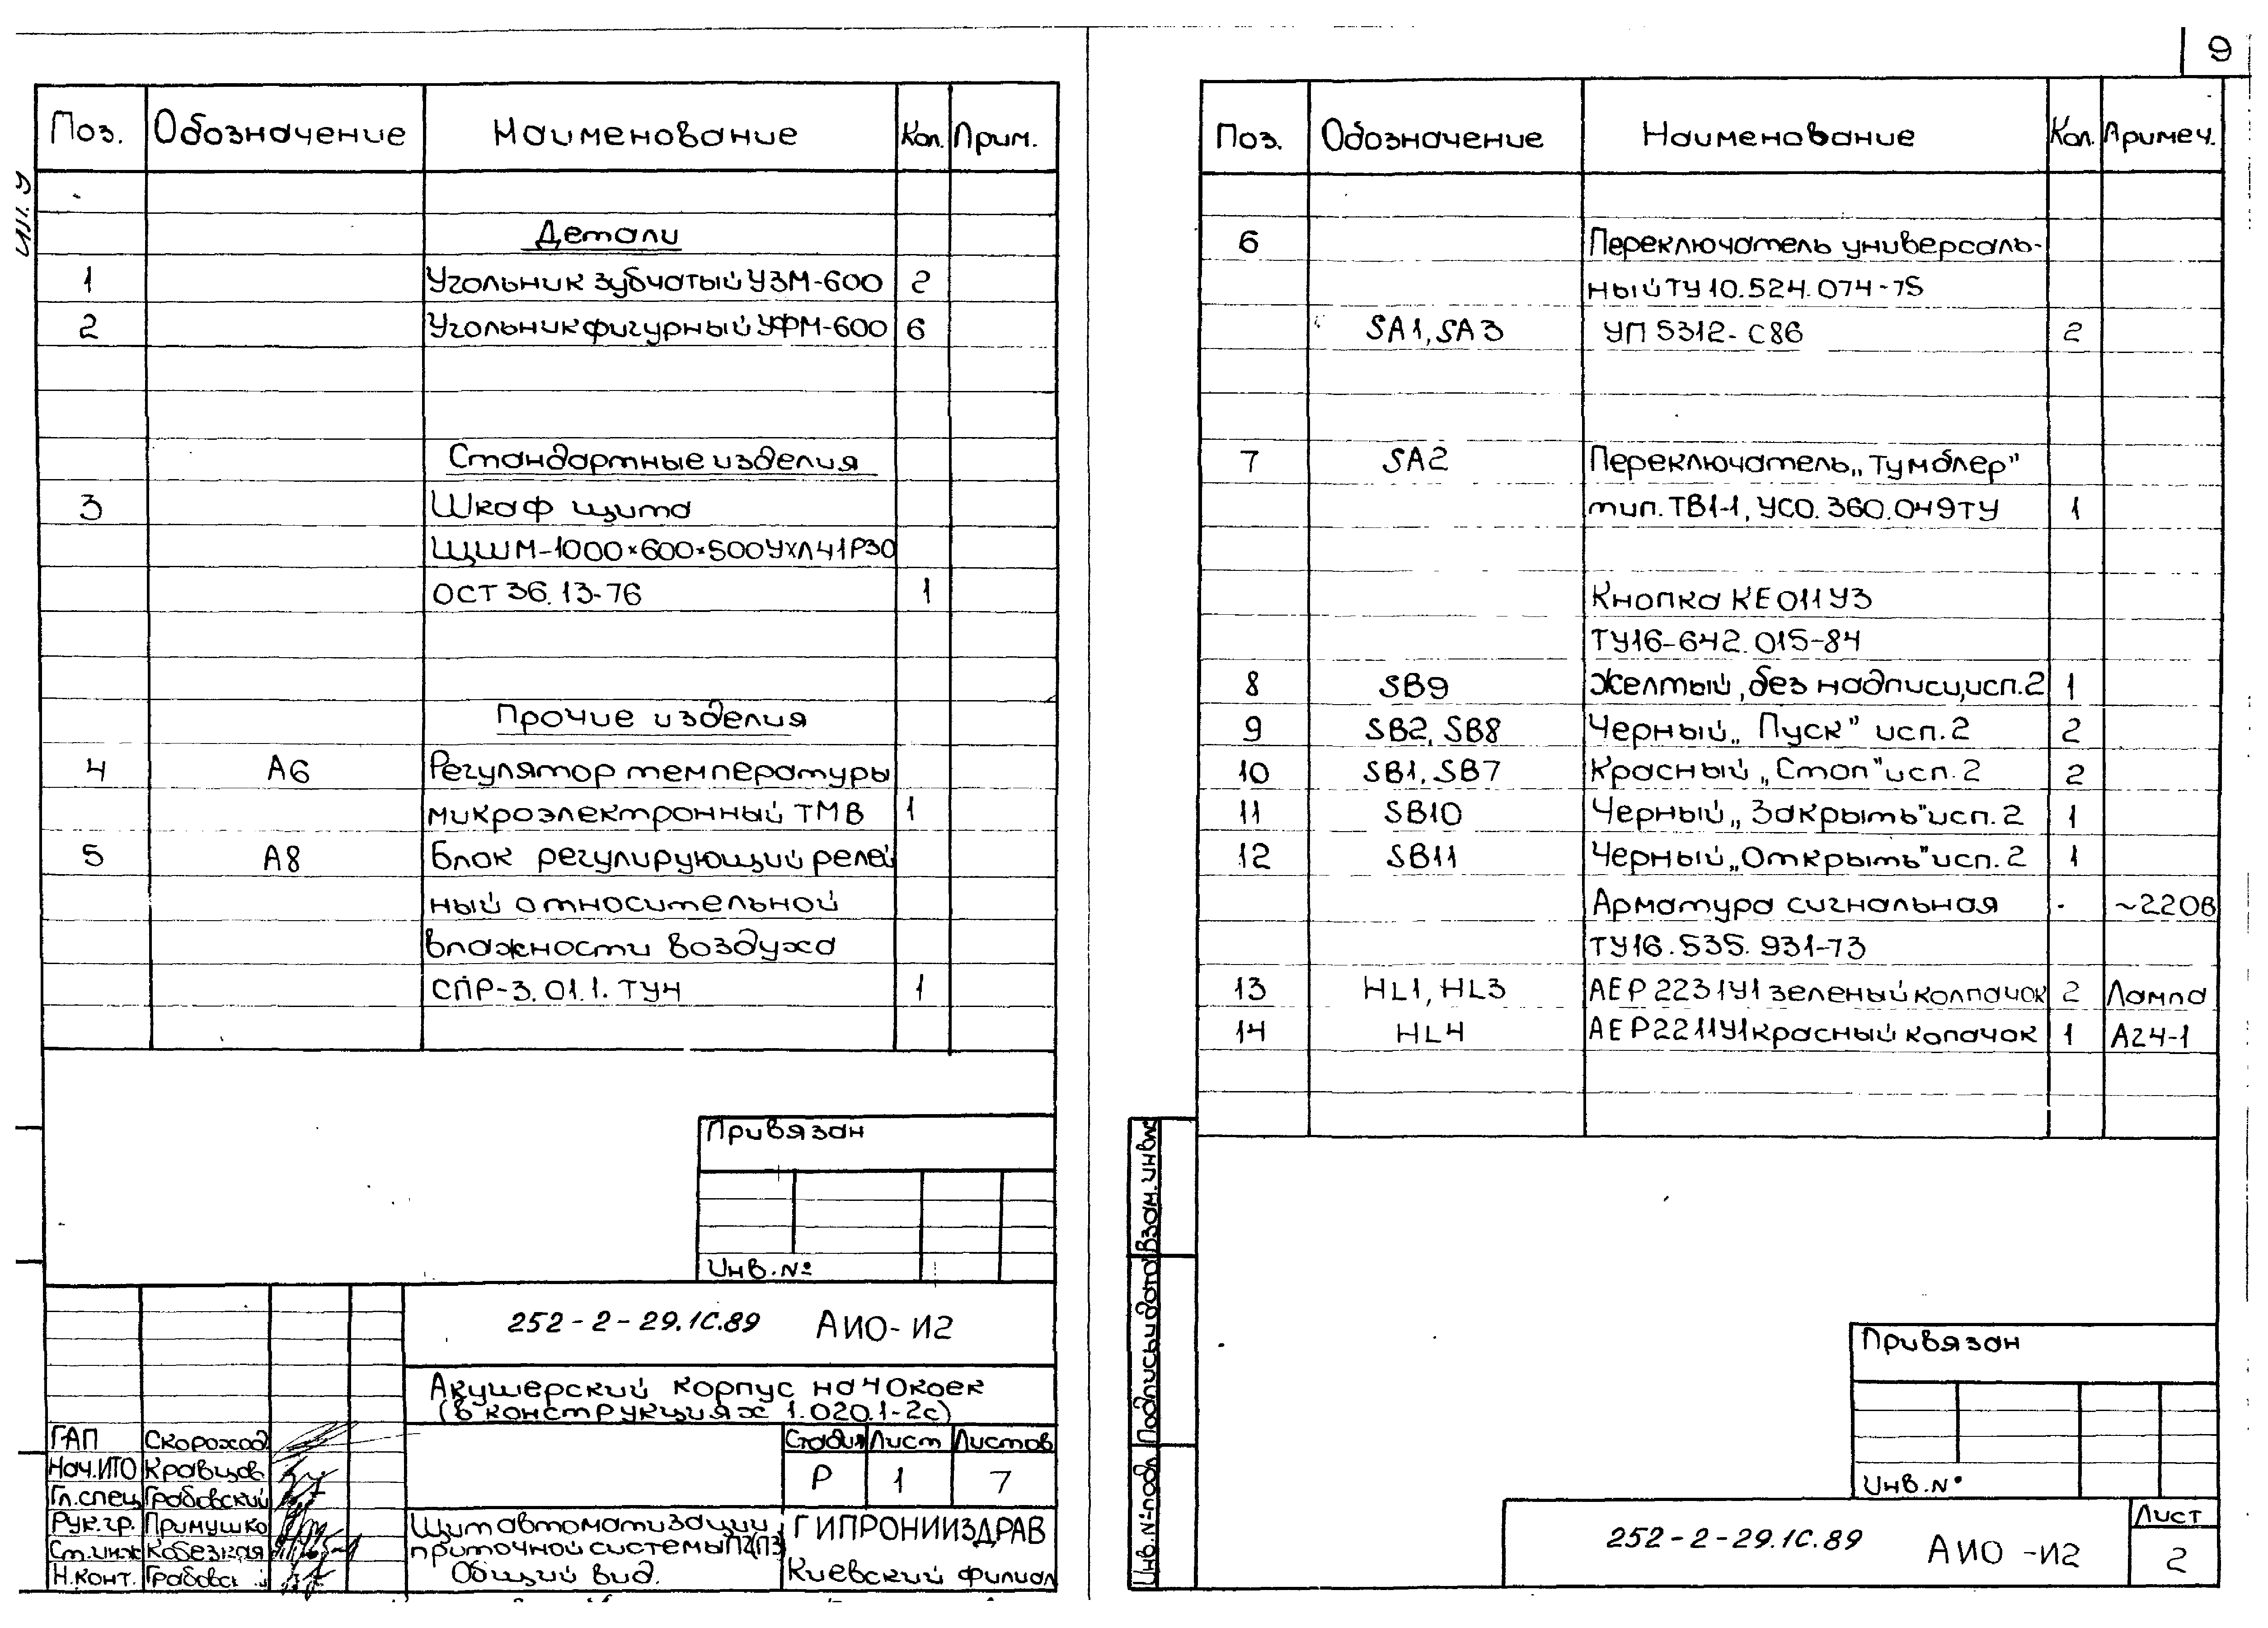 9
Поз. Обозначение Наименование Кол. Прим.
Детали
1 Угольник зубчатый УЗМ-600 2
2 Угольник фигурный УФМ-600 6
Стандартные изделия
3 Шкаф щита
ЩШМ-1000×600×500УХЛ41Р30
ОСТ 36.13-76 1
Прочие изделия
4 А6 Регулятор температуры
микроэлектронный ТМ8 1
5 А8 Блок регулирующий релей
ный относительной
влажности воздуха
СПР-3.01.1.ТУ4 1
Привязан
Инв.№
252-2-29.1С.89 АИО-И2
Акушерский корпус на 40 коек
(в конструкциях 1.020.1-2с)
Стадия Лист Листов
Р 1 7
ГАП Скороход
Нач.ИТО Кравцов
Гл.спец Грабовский
Рук.гр. Примушко
Ст.инж Кобезкая
Н.конт. Грабовс
Щит автоматизации
приточной системы П2(П3)
Общий вид.
ГИПРОНИИЗДРАВ
Киевский филиал
Поз. Обозначение Наименование Кол. Примеч.
6 Переключатель универсаль-
ный ТУ10.524.074-75
SA1, SA3 УП 5312-С86 2
7 SA2 Переключатель „Тумблер"
тип. ТВ1-1, УСО.360.049ТУ 1
Кнопка КЕ011У3
ТУ16-642.015-84
8 SB9 Желтый, без надписи, исп.2 1
9 SB2, SB8 Черный „Пуск" исп.2 2
10 SB1, SB7 Красный „Стоп" исп.2 2
11 SB10 Черный „Закрыть" исп.2 1
12 SB11 Черный „Открыть" исп.2 1
Арматура сигнальная ~220В
ТУ16.535.931-73
13 HL1, HL3 АЕР2231У1 зеленый колпачок 2 Лампа
14 HL4 АЕР2211У1 красный копачок 1 А24-1
Взам.инв№
Подпись и дата
Инв.№подл
Привязан
Инв.№
252-2-29.1С.89 АИО-И2
Лист
2